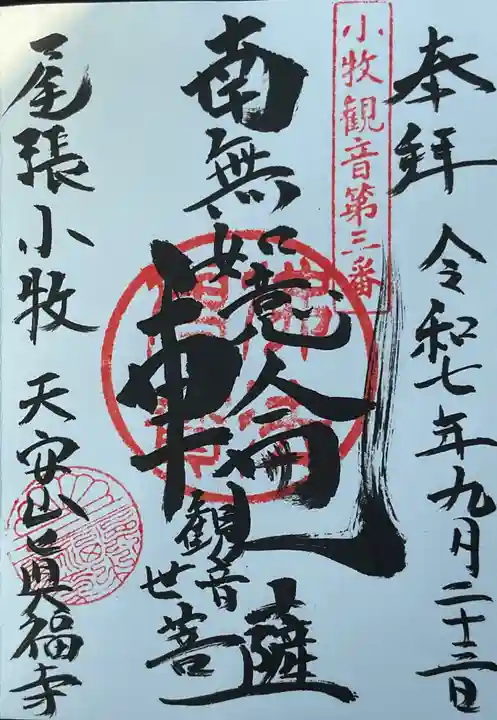 奉拝
令和七年九月二十三日
小牧観音第三番
南無如意輪観世音菩薩
尾張小牧
天安山眞福寺